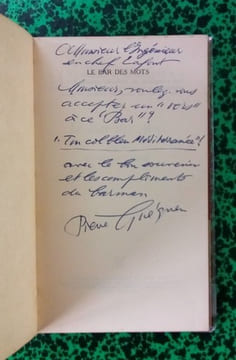 A Monsieur l'Ingénieur
en chef Lafont
LE BAR DES MOTS
Monsieur, voulez-vous
accepter un "vers"
à ce "Bar"?
"Ton col bleu Méditerranée"!
avec le bon souvenir
et les compliments
du barman
Pierre